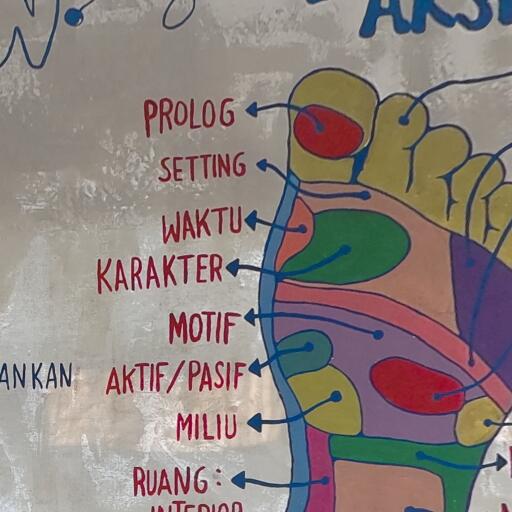 PROLOG
SETTING
WAKTU
KARAKTER
MOTIF
ANKAN
AKTIF/PASIF
MILIU
RUANG:
INTERIOR